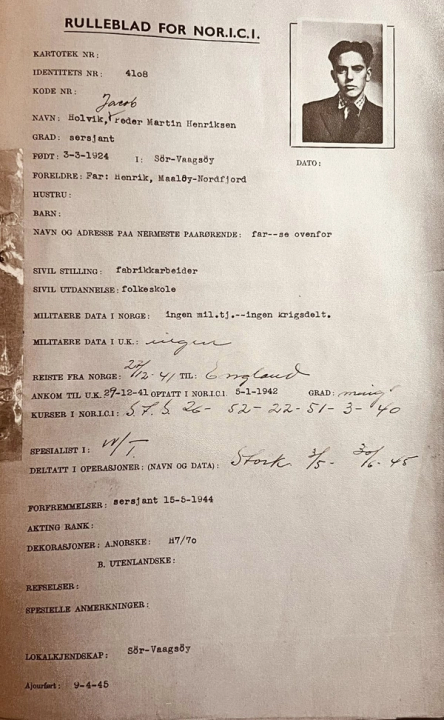 RULLEBLAD FOR NOR.I.C.I.
KARTOTEK NR:
IDENTITETS NR: 4108
KODE NR:
Jacob
NAVN: Holvik, Peder Martin Henriksen
GRAD: sersjant
FØDT: 3-3-1924 I: Sör-Vaagsöy
DATO:
FORELDRE: Far: Henrik, Maalöy-Nordfjord
HUSTRU:
BARN:
NAVN OG ADRESSE PAA NERMESTE PAARØRENDE: far--se ovenfor
SIVIL STILLING: fabrikkarbeider
SIVIL UTDANNELSE: folkeskole
MILITAERE DATA I NORGE: ingen mil.tj.--ingen krigsdelt.
MILITAERE DATA I U.K.: ingen
REISTE FRA NORGE: 27/12-41 TIL: England
ANKOM TIL U.K. 29-12-41 OPTATT I NOR.I.C.I. 5-1-1942 GRAD: menig
KURSER I NOR.I.C.I.: S.T.S. 26- 52- 22- 51- 3- 40
SPESIALIST I: W/T.
DELTATT I OPERASJONER: (NAVN OG DATA): Stork 3/5- 30/6-45
FORFREMMELSER: sersjant 15-5-1944
AKTING RANK:
DEKORASJONER: A.NORSKE: H7/70
B. UTENLANDSKE:
REFSELSER:
SPESIELLE ANMERKNINGER:
LOKALKJENDSKAP: Sör-Vaagsöy
Ajourført: 9-4-45